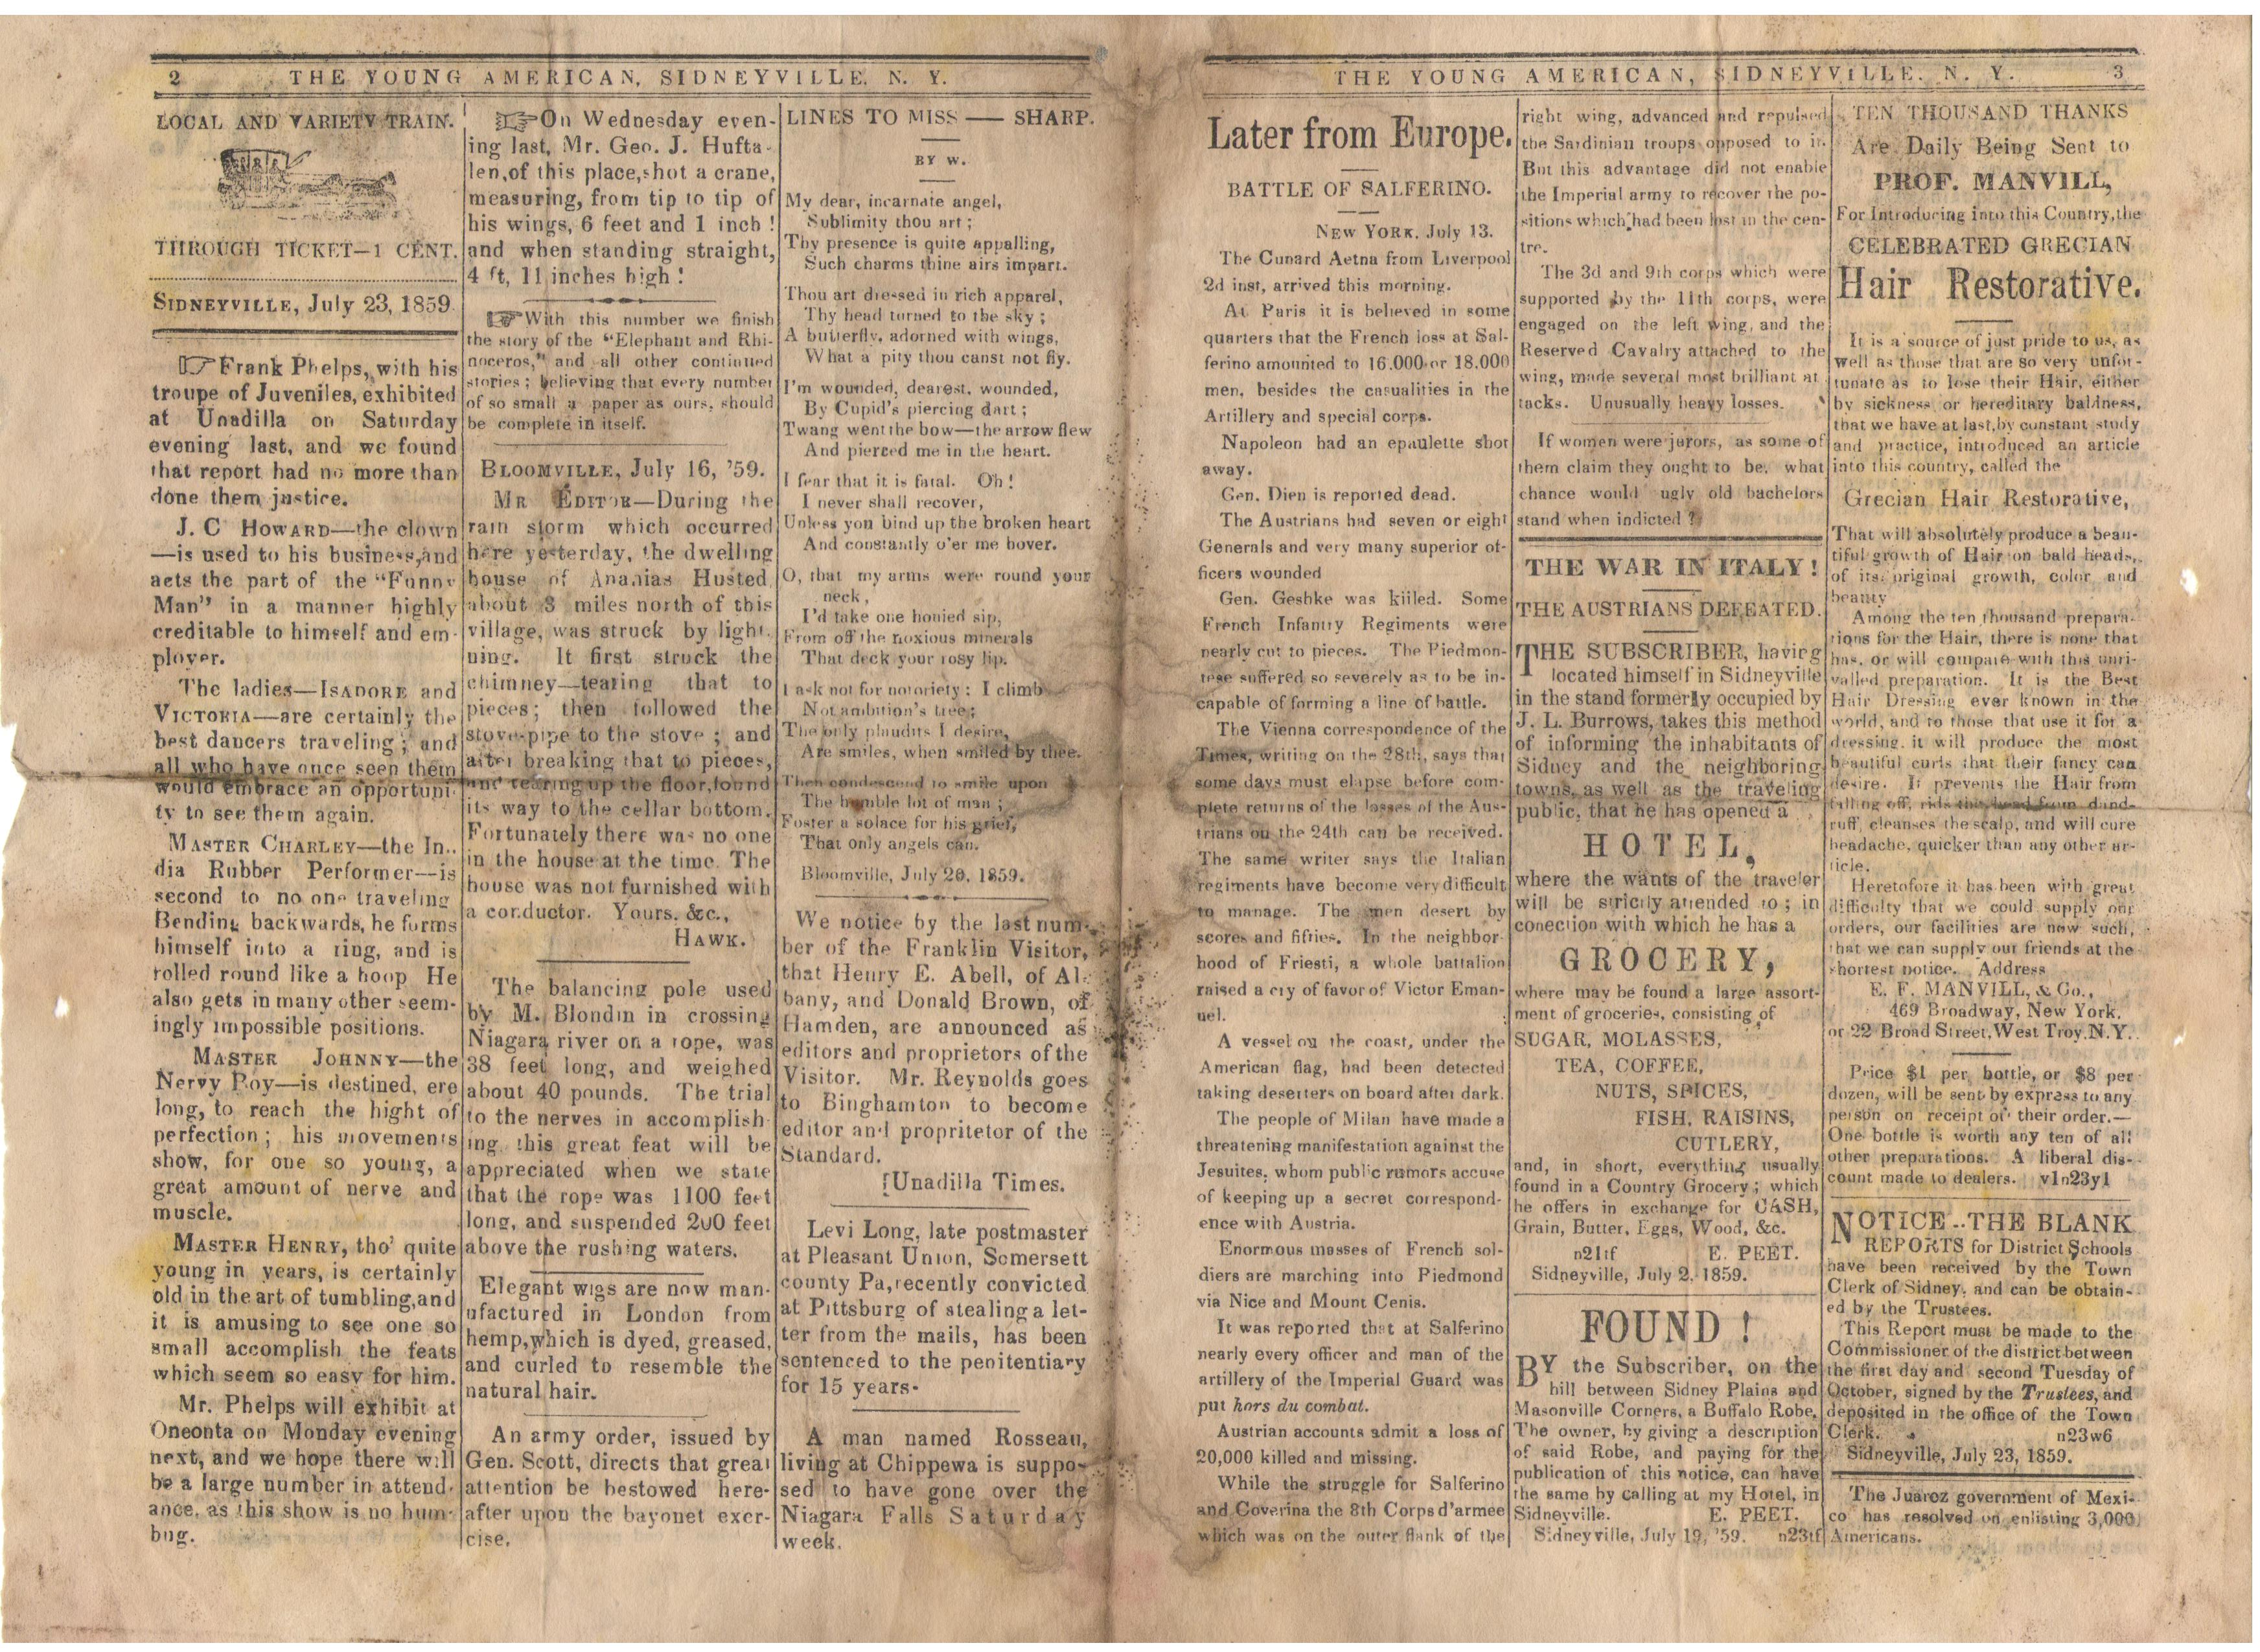 2 THE YOUNG AMERICAN, SIDNEYVILLE, N. Y.
LOCAL AND VARIETY TRAIN.
THROUGH TICKET—1 CENT.
SIDNEYVILLE, July 23, 1859.
☞Frank Phelps, with his
troupe of Juveniles, exhibited
at Unadilla on Saturday
evening last, and we found
that report had no more than
done them justice.
J. C HOWARD—the clown
—is used to his business,and
acts the part of the "Funny
Man" in a manner highly
creditable to himself and em-
ployer.
The ladies—ISADORE and
VICTORIA—are certainly the
best dancers traveling; and
all who have once seen them
would embrace an opportuni-
ty to see them again.
MASTER CHARLEY—the In-
dia Rubber Performer—is
second to no one traveling
Bending backwards, he forms
himself into a ring, and is
rolled round like a hoop He
also gets in many other seem-
ingly impossible positions.
MASTER JOHNNY—the
Nervy Boy—is destined, ere
long, to reach the hight of
perfection; his movements
show, for one so young, a
great amount of nerve and
muscle.
MASTER HENRY, tho' quite
young in years, is certainly
old in the art of tumbling,and
it is amusing to see one so
small accomplish the feats
which seem so easy for him.
Mr. Phelps will exhibit at
Oneonta on Monday evening
next, and we hope there will
be a large number in attend-
ance, as this show is no hum-
bug.
☞On Wednesday even-
ing last, Mr. Geo. J. Hufta-
len,of this place,shot a crane,
measuring, from tip to tip of
his wings, 6 feet and 1 inch!
and when standing straight,
4 ft, 11 inches high!
☞With this number we finish
the story of the "Elephant and Rhi-
noceros," and all other continued
stories; believing that every number
of so small a paper as ours, should
be complete in itself.
BLOOMVILLE, July 16, '59.
MR EDITOR—During the
rain storm which occurred
here yesterday, the dwelling
house of Ananias Husted
about 3 miles north of this
village, was struck by light-
ning. It first struck the
chimney—tearing that to
pieces; then followed the
stove-pipe to the stove; and
after breaking that to pieces,
and tearing up the floor,found
its way to the cellar bottom.
Fortunately there was no one
in the house at the time. The
house was not furnished with
a conductor. Yours, &c.,
HAWK.
The balancing pole used
by M. Blondin in crossing
Niagara river on a rope, was
38 feet long, and weighed
about 40 pounds. The trial
to the nerves in accomplish-
ing this great feat will be
appreciated when we state
that the rope was 1100 feet
long, and suspended 200 feet
above the rushing waters.
Elegant wigs are now man-
ufactured in London from
hemp,which is dyed, greased,
and curled to resemble the
natural hair.
An army order, issued by
Gen. Scott, directs that great
attention be bestowed here-
after upon the bayonet exer-
cise.
LINES TO MISS —— SHARP.
BY W.
My dear, incarnate angel,
Sublimity thou art;
Thy presence is quite appalling,
Such charms thine airs impart.
Thou art dressed in rich apparel,
Thy head turned to the sky;
A butterfly, adorned with wings,
What a pity thou canst not fly.
I'm wounded, dearest, wounded,
By Cupid's piercing dart;
Twang went the bow—the arrow flew
And pierced me in the heart.
I fear that it is fatal. Oh!
I never shall recover,
Unless you bind up the broken heart
And constantly o'er me hover.
O, that my arms were round your
neck,
I'd take one honied sip,
From off the noxious minerals
That deck your rosy lip.
I ask not for notoriety; I climb
Not ambition's tree;
The only plaudits I desire,
Are smiles, when smiled by thee.
Then condescend to smile upon
The humble lot of man;
Foster a solace for his grief,
That only angels can.
Bloomville, July 20, 1859.
We notice by the last num-
ber of the Franklin Visitor,
that Henry E. Abell, of Al-
bany, and Donald Brown, of
Hamden, are announced as
editors and proprietors of the
Visitor. Mr. Reynolds goes
to Binghamton to become
editor and propritetor of the
Standard.
[Unadilla Times.
Levi Long, late postmaster
at Pleasant Union, Somersett
county Pa,recently convicted
at Pittsburg of stealing a let-
ter from the mails, has been
sentenced to the penitentiary
for 15 years.
A man named Rosseau,
living at Chippewa is suppo-
sed to have gone over the
Niagara Falls Saturday
week.
THE YOUNG AMERICAN, SIDNEYVILLE. N. Y. 3
Later from Europe.
BATTLE OF SALFERINO.
NEW YORK, July 13.
The Cunard Aetna from Liverpool
2d inst, arrived this morning.
At Paris it is believed in some
quarters that the French loss at Sal-
ferino amounted to 16.000 or 18.000
men, besides the casualities in the
Artillery and special corps.
Napoleon had an epaulette shot
away.
Gen. Dien is reported dead.
The Austrians had seven or eight
Generals and very many superior of-
ficers wounded
Gen. Geshke was kiiled. Some
French Infantry Regiments were
nearly cut to pieces. The Piedmon-
tese suffered so severely as to be in-
capable of forming a line of battle.
The Vienna correspondence of the
Times, writing on the 28th, says that
some days must elapse before com-
plete returns of the losses of the Aus-
trians on the 24th can be received.
The same writer says the Italian
regiments have become very difficult
to manage. The men desert by
scores and fifties. In the neighbor-
hood of Friesti, a whole battalion
raised a cry of favor of Victor Eman-
uel.
A vessel on the coast, under the
American flag, had been detected
taking deserters on board after dark.
The people of Milan have made a
threatening manifestation against the
Jesuites, whom public rumors accuse
of keeping up a secret correspond-
ence with Austria.
Enormous masses of French sol-
diers are marching into Piedmond
via Nice and Mount Cenis.
It was reported that at Salferino
nearly every officer and man of the
artillery of the Imperial Guard was
put hors du combat.
Austrian accounts admit a loss of
20,000 killed and missing.
While the struggle for Salferino
and Coverina the 8th Corps d'armee
which was on the outer flank of the
right wing, advanced and repulsed
the Sardinian troops opposed to it.
But this advantage did not enable
the Imperial army to recover the po-
sitions which had been lost in the cen-
tre.
The 3d and 9th corps which were
supported by the 11th corps, were
engaged on the left wing, and the
Reserved Cavalry attached to the
wing, made several most brilliant at
tacks. Unusually heavy losses.
If women were jurors, as some of
them claim they ought to be, what
chance would ugly old bachelors
stand when indicted?
THE WAR IN ITALY!
THE AUSTRIANS DEFEATED.
THE SUBSCRIBER, having
located himself in Sidneyville
in the stand formerly occupied by
J. L. Burrows, takes this method
of informing the inhabitants of
Sidney and the neighboring
towns, as well as the traveling
public, that he has opened a
HOTEL,
where the wants of the traveler
will be strictly attended to; in
conection with which he has a
GROCERY,
where may be found a large assort-
ment of groceries, consisting of
SUGAR, MOLASSES,
TEA, COFFEE,
NUTS, SPICES,
FISH, RAISINS,
CUTLERY,
and, in short, everything usually
found in a Country Grocery; which
he offers in exchange for CASH,
Grain, Butter, Eggs, Wood, &c.
n21tf E. PEET.
Sidneyville, July 2, 1859.
FOUND!
BY the Subscriber, on the
hill between Sidney Plains and
Masonville Corners, a Buffalo Robe.
The owner, by giving a description
of said Robe, and paying for the
publication of this notice, can have
the same by calling at my Hotel, in
Sidneyville. E. PEET.
Sidneyville, July 19, '59. n23tf
TEN THOUSAND THANKS
Are Daily Being Sent to
PROF. MANVILL,
For Introducing into this Country,the
CELEBRATED GRECIAN
Hair Restorative.
It is a source of just pride to us, as
well as those that are so very unfor-
tunate as to lose their Hair, either
by sickness or hereditary baldness,
that we have at last,by constant study
and practice, introduced an article
into this country, called the
Grecian Hair Restorative,
That will absolutely produce a beau-
tiful growth of Hair on bald heads,
of its original growth, color and
beauty
Among the ten thousand prepara-
tions for the Hair, there is none that
has, or will compare with this unri-
valled preparation. It is the Best
Hair Dressing ever known in the
world, and to those that use it for a
dressing, it will produce the most
beautiful curls that their fancy can
desire. It prevents the Hair from
falling off, rids the head from dand-
ruff, cleanses the scalp, and will cure
headache, quicker than any other ar-
ticle.
Heretofore it has been with great
difficulty that we could supply our
orders, our facilities are now such,
that we can supply our friends at the
shortest notice. Address
E. F. MANVILL, & Co.,
469 Broadway, New York,
or 22 Broad Street, West Troy, N.Y.
Price $1 per bottle, or $8 per
dozen, will be sent by express to any
person on receipt of their order.—
One bottle is worth any ten of all
other preparations. A liberal dis-
count made to dealers. v1n23y1
NOTICE..THE BLANK
REPORTS for District Schools
have been received by the Town
Clerk of Sidney, and can be obtain-
ed by the Trustees.
This Report must be made to the
Commissioner of the district between
the first day and second Tuesday of
October, signed by the Trustees, and
deposited in the office of the Town
Clerk. n23w6
Sidneyville, July 23, 1859.
The Juarez government of Mexi-
co has resolved on enlisting 3,000
Americans.